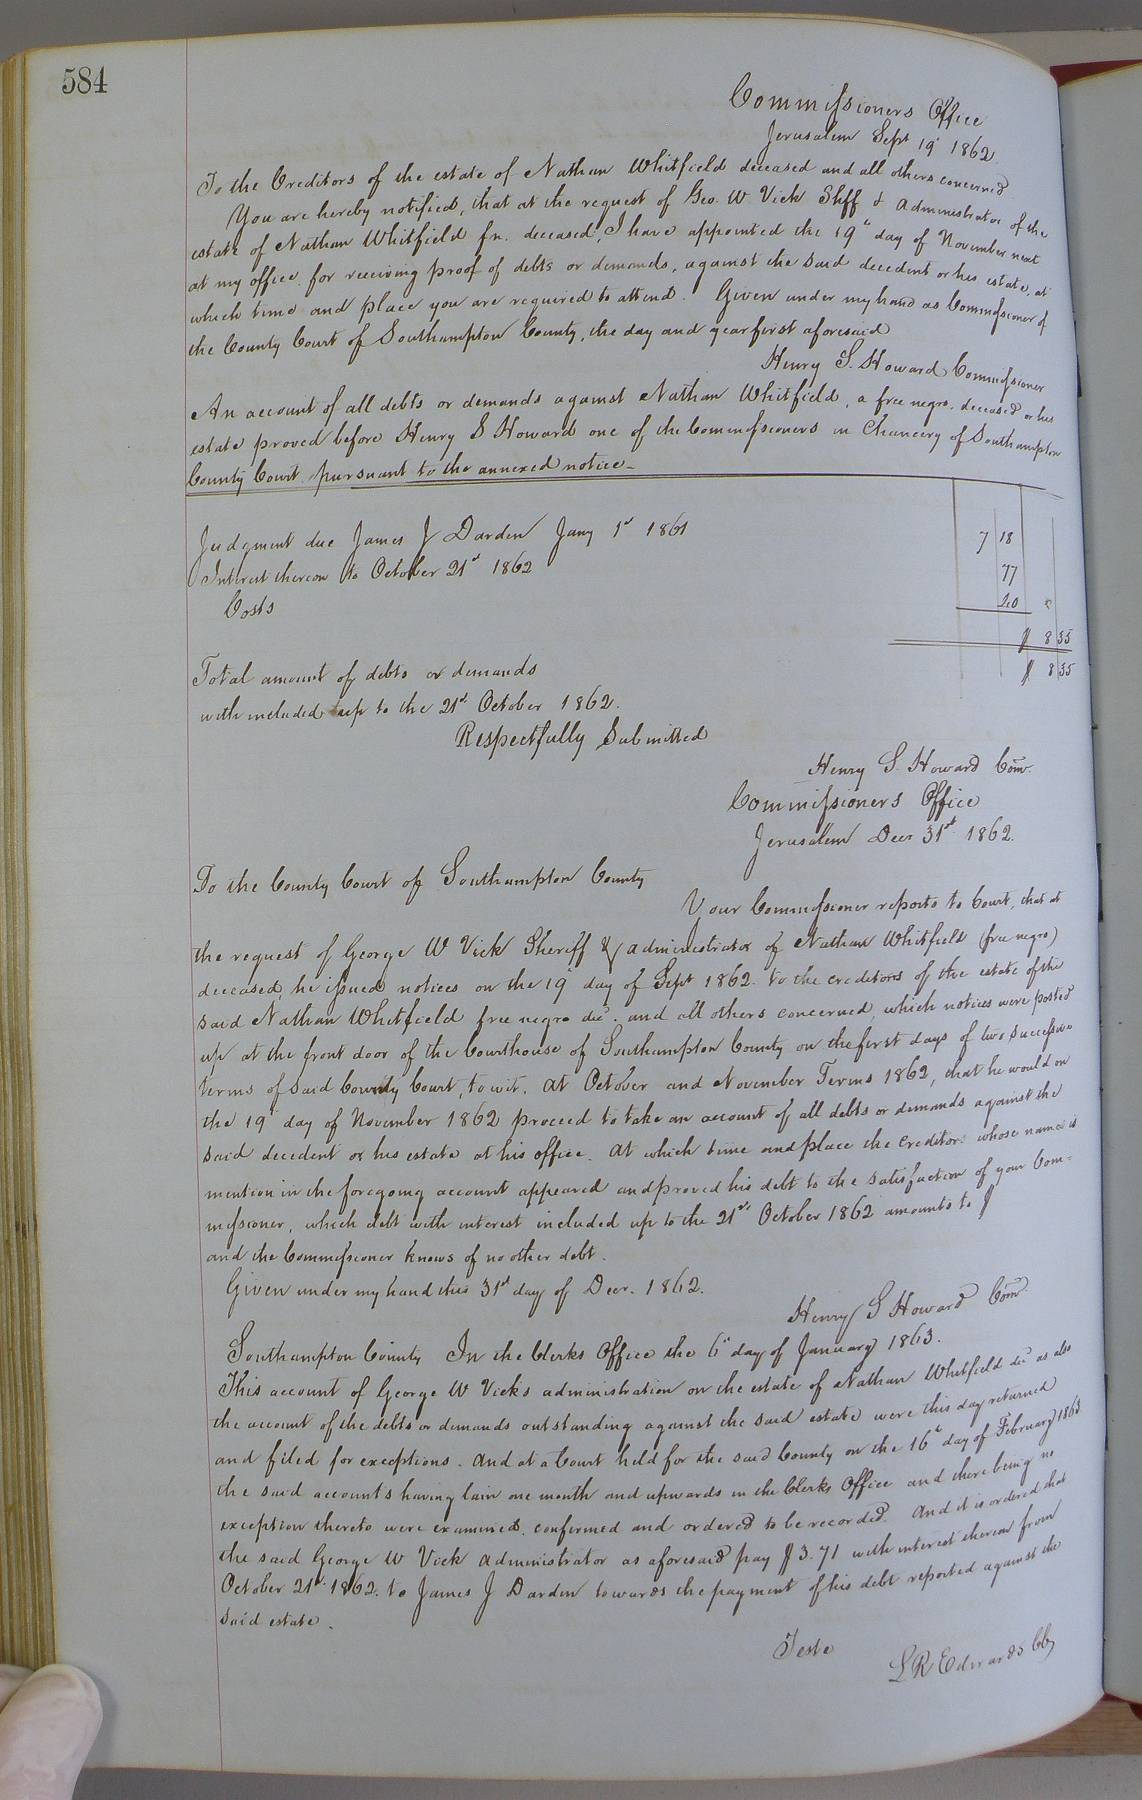 584
Commissioners Office
Jerusalem Sept 19th 1862
To the Creditors of the estate of Nathan Whitfield deceased and all others concerned
You are hereby notified, that at the request of Geo. W Vick Shff & Administrator of the
estate of Nathan Whitfield fn. deceased, I have appointed the 19th day of November next
at my office for receiving proof of debts or demands, against the said decedent or his estate, at
which time and place you are required to attend. Given under my hand as Commissioner of
the County Court of Southampton County, the day and year first aforesaid
Henry S. Howard Commissioner
An account of all debts or demands against Nathan Whitfield, a free negro, deceased or his
estate proved before Henry S Howard one of the Commissioners in Chancery of Southampton
County Court pursuant to the annexed notice-
Judgment due James J Darden Jany 1st 1861 7 18
Interest thereon to October 21st 1862 77
Costs
$ 8 55
Total amount of debts or demands $ 8 55
with included up to the 21st October 1862.
Respectfully Submitted
Henry S. Howard Com.
Commissioners Office
Jerusalem Decr 31st 1862.
To the County Court of Southampton County
Your Commissioner reports to Court, that at
the request of George W Vick Sheriff & administrator of Nathan Whitfield (free negro)
deceased, he issued notices on the 19th day of Sept 1862. to the creditors of the estate of the
said Nathan Whitfield free negro dec. and all others concerned, which notices were posted
up at the front door of the Courthouse of Southampton County on the first days of two successive
terms of said County Court, to wit, at October and November Terms 1862, that he would on
the 19th day of November 1862 proceed to take an account of all debts or demands against the
said decedent or his estate at his office. At which time and place the creditors whose name is
mention in the foregoing account appeared and proved his debt to the satisfaction of your Com=
missioner, which debt with interest included up to the 21st October 1862 amounts to $
and the Commissioner knows of no other debt.
Given under my hand this 31st day of Decr. 1862.
Henry S Howard Com
Southampton County In the Clerks Office the 6th day of January 1863.
This account of George W Vicks administration on the estate of Nathan Whitfield dec as also
the account of the debts or demands outstanding against the said estate were this day returned
and filed for exceptions. And at a Court held for the said County on the 16th day of February 1863
the said accounts having lain one month and upwards in the Clerks Office and there being no
exception thereto were examined, confirmed and ordered to be recorded. And it is ordered that
the said George W Vick administrator as aforesaid pay $3.71 with interest thereon from
October 21st 1862. to James J Darden towards the payment of his debt reported against the
said estate.
Teste
L R Edwards